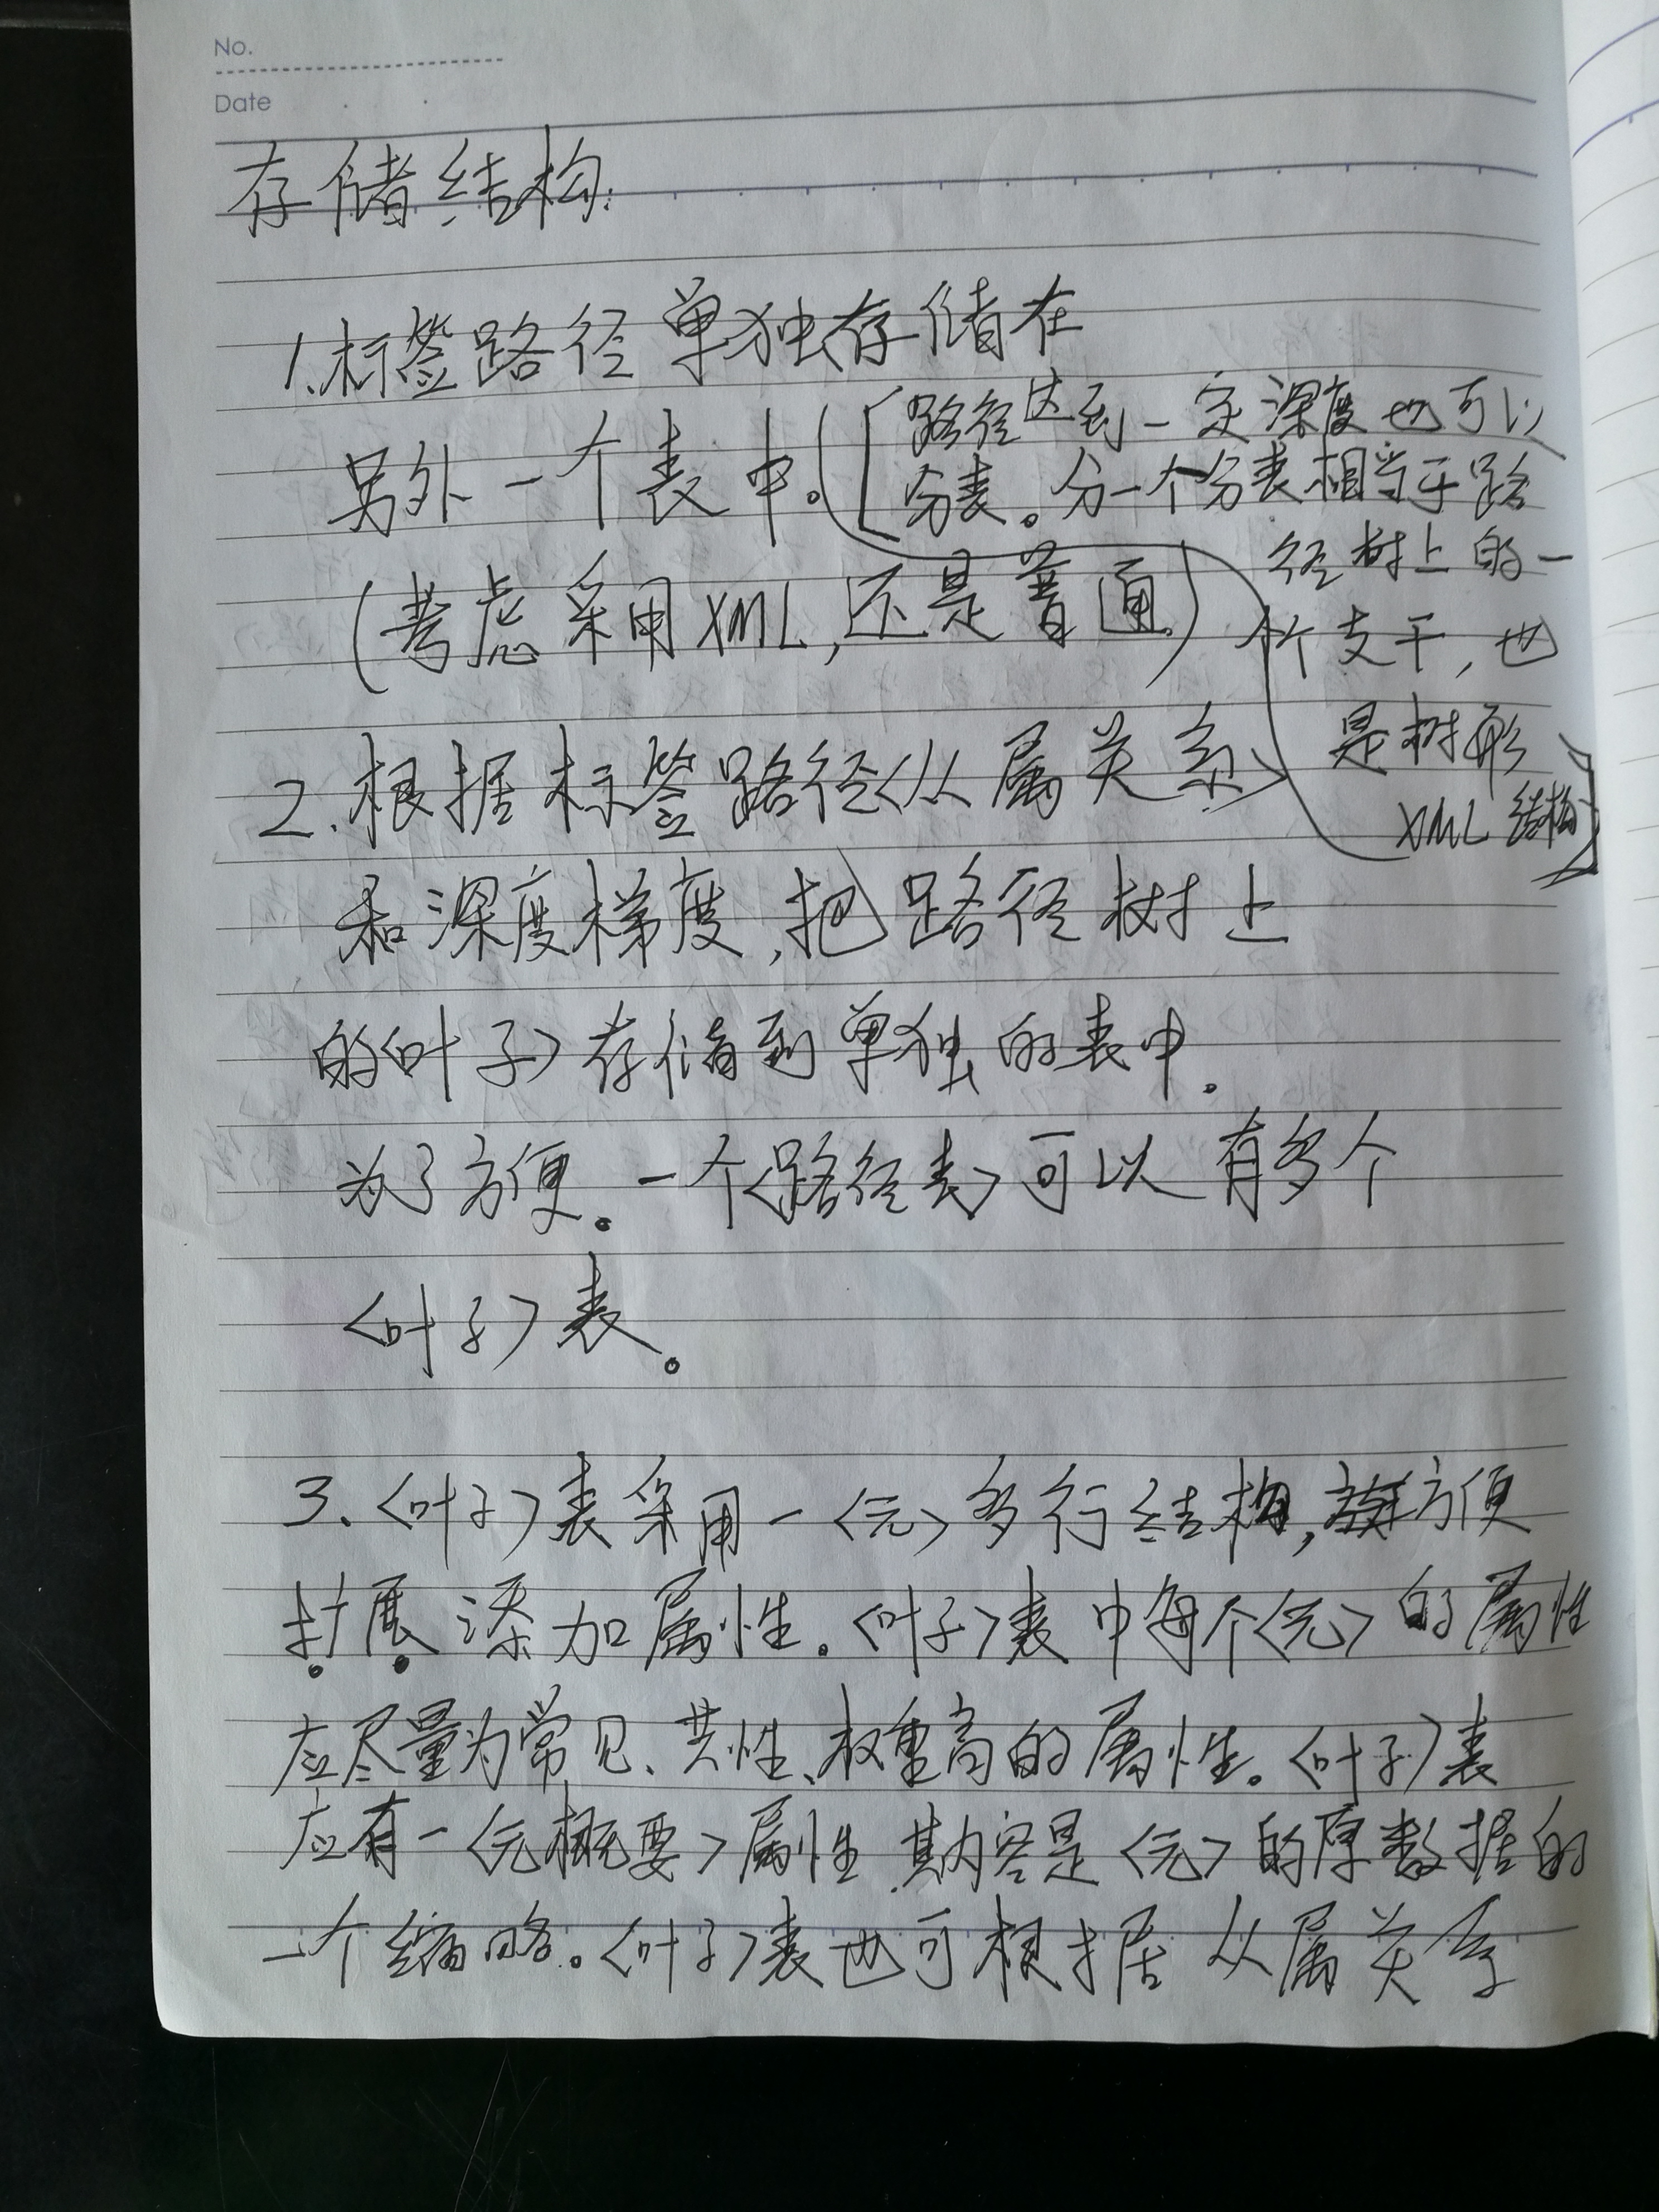 No.
Date
存储结构:
1.标签路径单独存储在
另外一个表中。
[路径达到一定深度也可以
分表。分一个分表相当于路
径树上的一
个支干,也
是树形
XML结构]
(考虑采用XML,还是普通)
2.根据标签路径<从属关系>
和深度梯度,把路径树上
的<叶子>存储到单独的表中.
为了方便。一个<路径表>可以有多个
<叶子>表。
3.<叶子>表采用一<元>多行结构,方便
扩展添加属性。<叶子>表中每个<元>的属性
应尽量为常见、共性、权重高的属性。<叶子>表
应有一<元概要>属性.其内容是<元>的厚数据的
一个缩略。<叶子>表也可根据从属关系